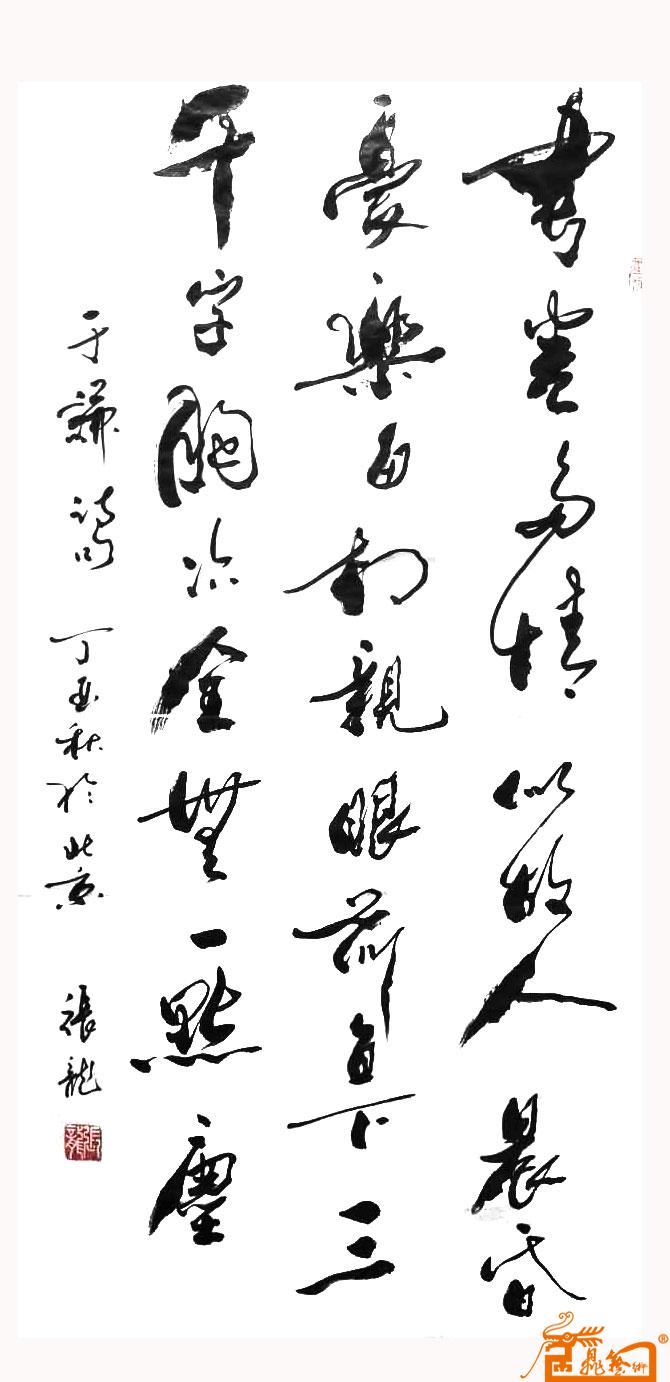 書卷多情似故人晨昏
憂樂每相親眼前直下三
千字胸次全無一點塵
于謙詩句 丁酉秋於北京 張龍
張龍